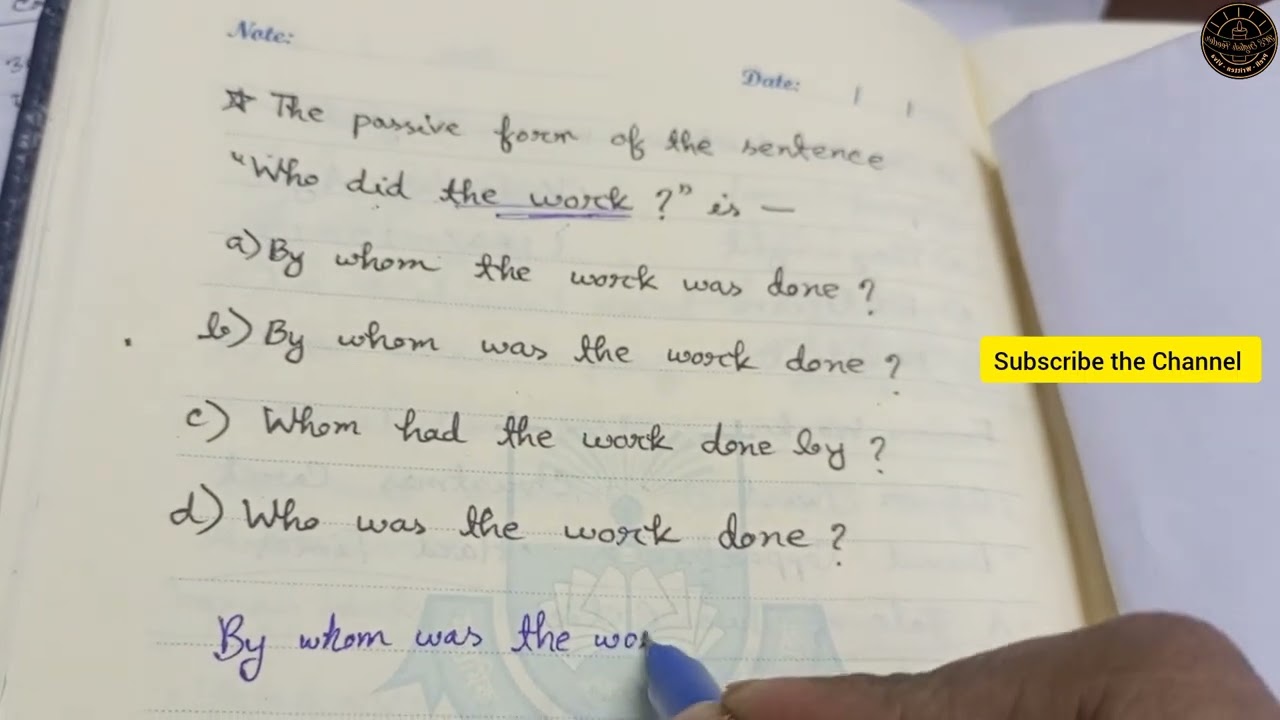 Note:
Date:
☆ The passive form of the sentence
"Who did the work ?" is —
a) By whom the work was done ?
b) By whom was the work done ?
c) Whom had the work done by ?
d) Who was the work done ?
By whom was the wo
Subscribe the Channel